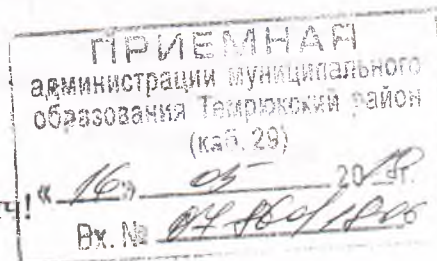 ПРИЕМНАЯ
администрации муниципального
образования Темрюкский район
(каб. 29)
«16» 05 20 г.
Вх. №